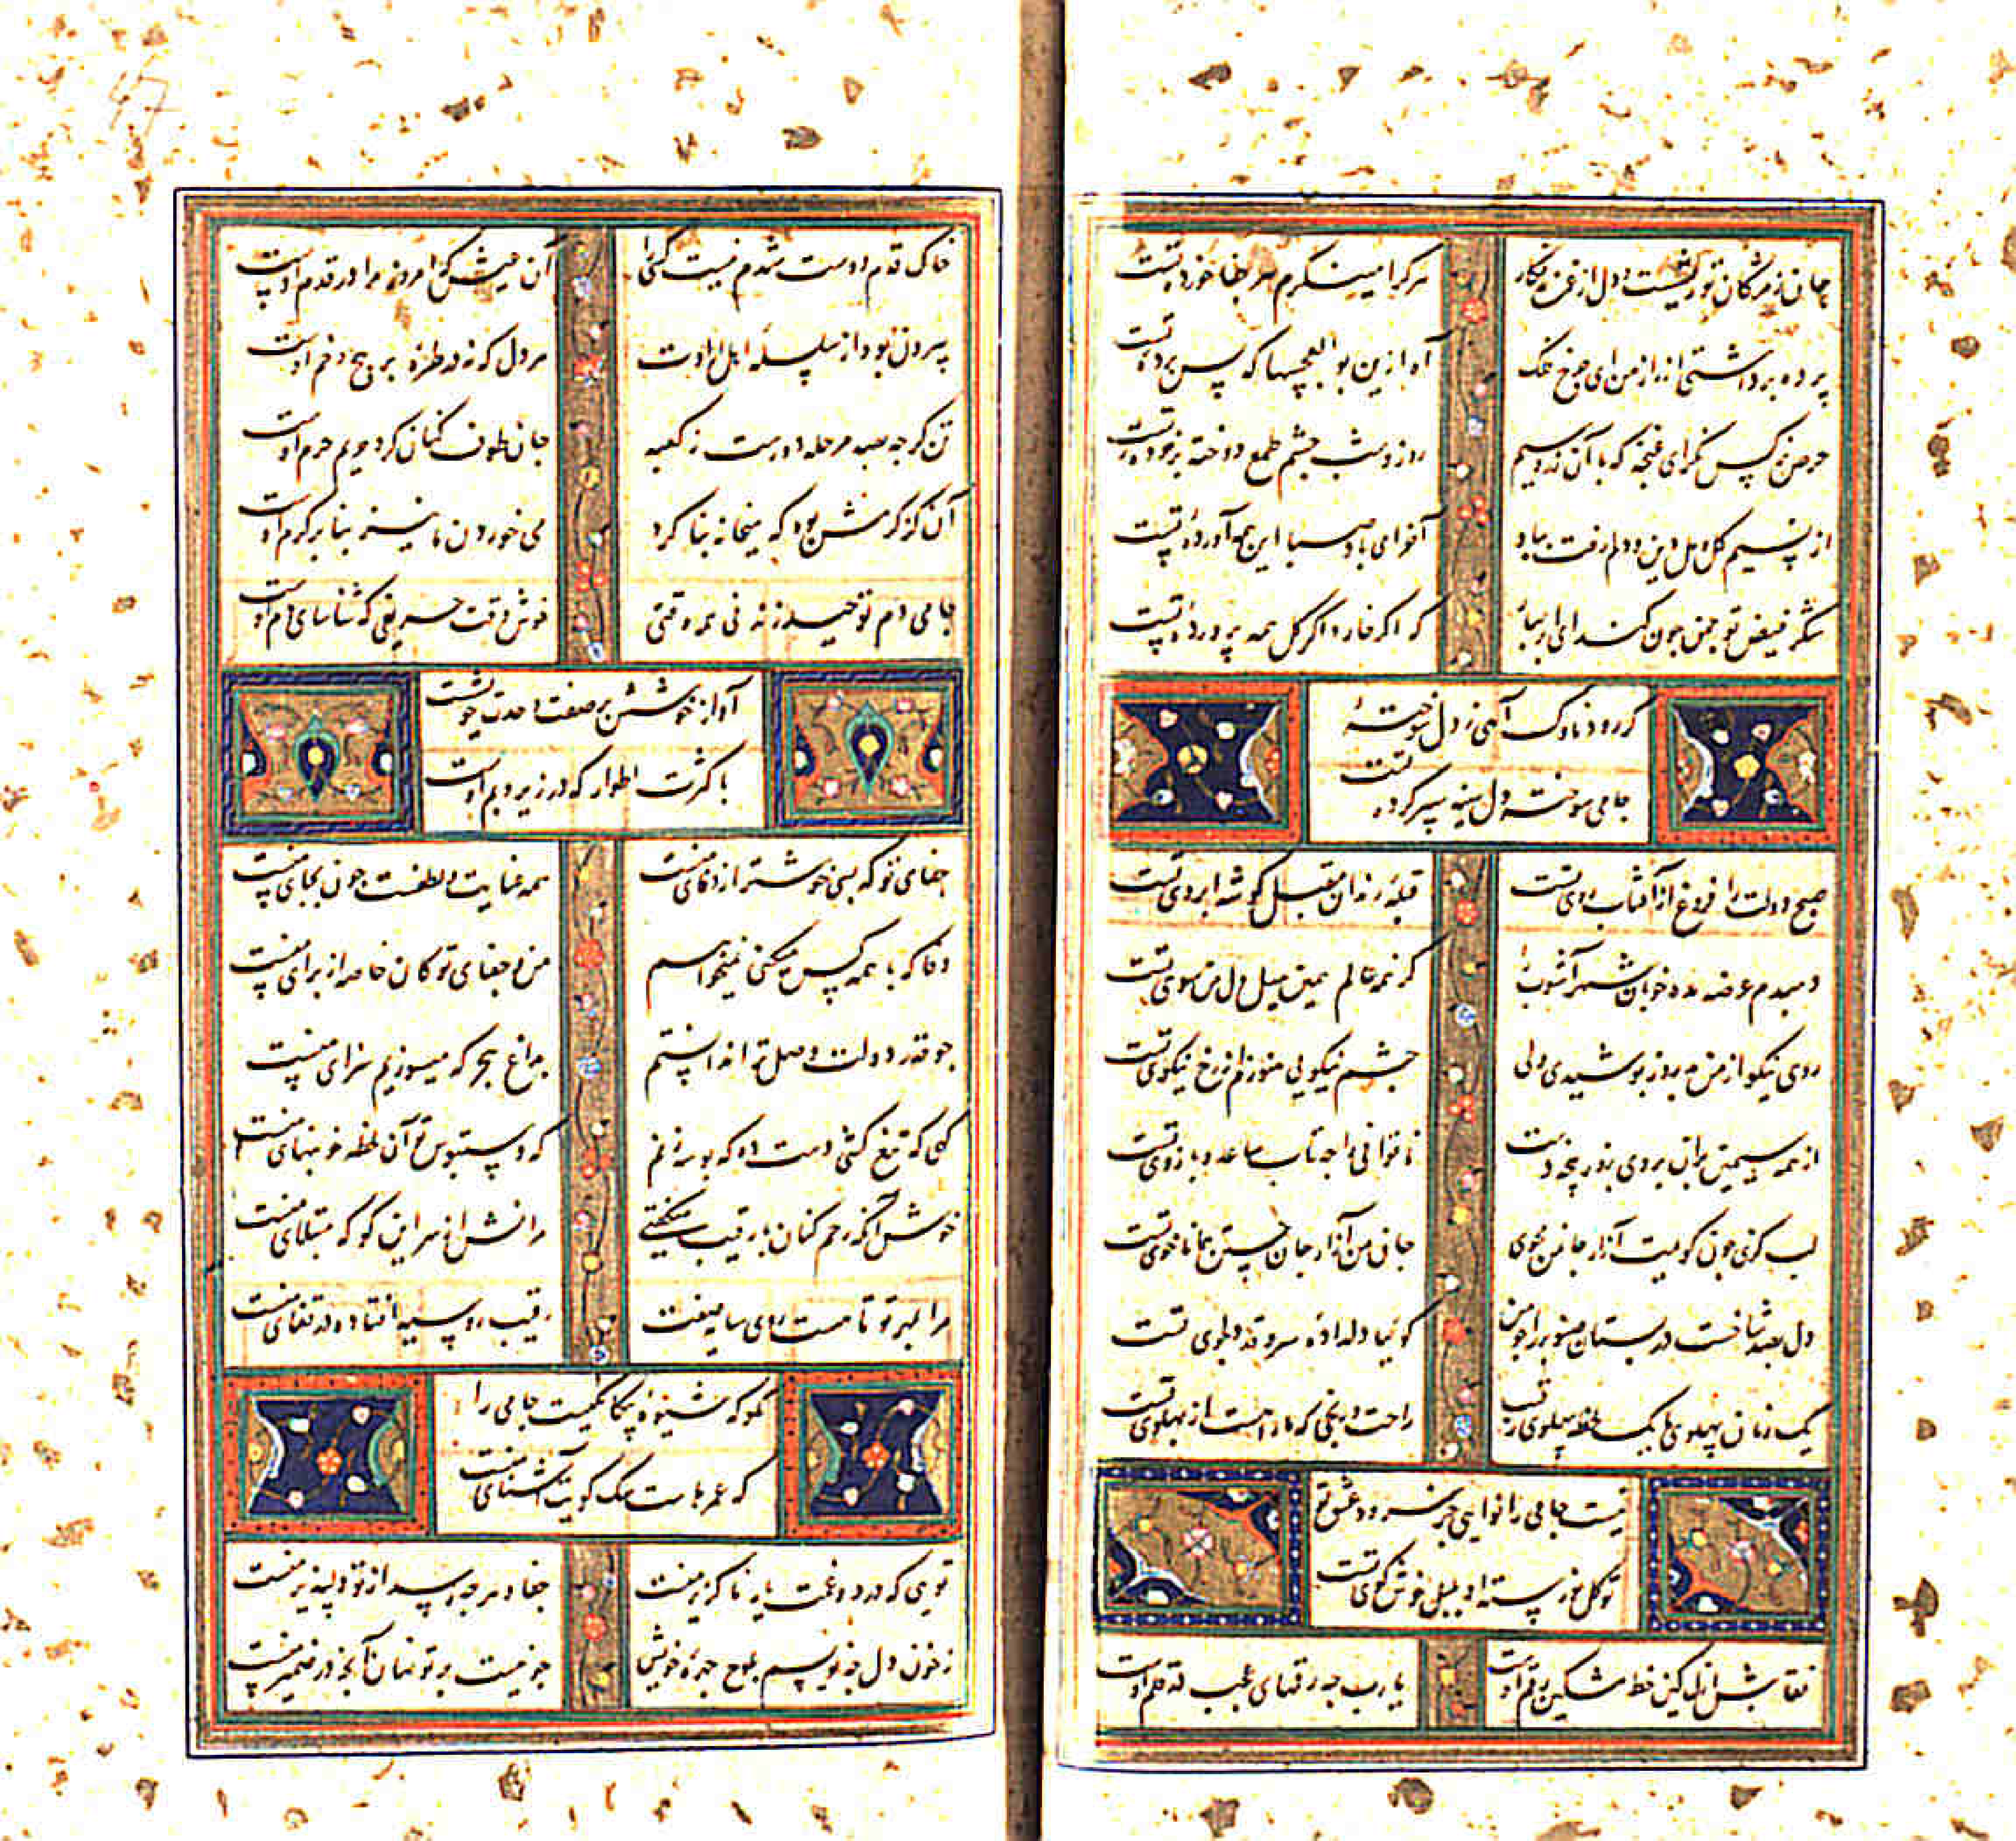 جانم از مژگان تو ریشست و دل از غمزه فکار
هر کرا می‌نگرم هر بجفا خورد تست
پرده برداشتی از راز من ای چرخ فلک
آه ازین بوالعجبیها که پس پرده تست
حرص نرگس نگر ای غنچه که با آن زر و سیم
روز و شب چشم طمع دوخته بر خرده تست
از نسیم گل و مل دین و دلم رفت بباد
آخر ای باد صبا این همه آورده تست
شکر فیض تو چمن چون کند ای ابر بهار
که اگر خار و اگر گل همه پرورده تست
گر رود ناوک آهی ز دل سوخته
جامی سوخته دل سینه سپر کرده تست
صبح دولت را فروغ از آفتاب روی تست
قبله رندان مقبل گوشه ابروی تست
دمبدم عرضه مده خوبان شهرآشوب را
کز همه عالم همین میل دل من سوی تست
روی نیکو از من بدروز پوشیدی ولی
چشم نیکویی هنوزم از رخ نیکوی تست
از همه سیمین بران بردی بزور پنجه دست
ناتوانی را چه تاب ساعد و بازوی تست
لب گزی چون گویمت آزار جان من مجوی
جان من آزار جان خستن همانا خوی تست
دل بصد شاخست در بستان صنوبر را چو من
گوییا دلداده سرو قد دلجوی تست
یک زمان پهلوی ما یک لحظه پهلوی رقیب
راحت و رنجی که ما را هست از پهلوی تست
نیست جامی را نوایی جز سرود عشق تو
تو گل نورسته او بلبل خوش گوی تست
نقاش ازل کین خط مشکین رقم اوست
یا رب چه رقمهای عجب در قلم اوست
خاک قدم دوست شدم نیست کسی را
آن عیش که امروز مرا در قدم اوست
بیرون بود از سلسله اهل ارادت
هر دل که نه در طره پر پیچ و خم اوست
تن گر چه بصد مرحله دورست ز کعبه
جان طوف کنان گرد حریم حرم اوست
آن کز کرمش بود که میخانه بنا کرد
می خوردن ما نیز بنا بر کرم اوست
جامی دم توحید زند نی همه وقتی
خوش وقت حریفی که شناسای دم اوست
آواز خوشش بر صفت وحدت خویشست
با کثرت اطوار که در زیر و بم اوست
جفای تو که بسی خوشتر از وفای منست
همه عنایت و لطفست چون بجای منست
وفا که با همه کس میکنی نمیخواهم
من و جفای تو کان خاصه از برای منست
چو قدر دولت وصل ترا ندانستم
بداغ هجر که میسوزیم سزای منست
گهی که تیغ کشی دست ده که بوسه زنم
که دستبوس تو آن لحظه خونبهای منست
خوش آنکه رحم کنان با رقیب میگفتی
مرانش از سر این کو که مبتلای منست
مرا بمهر تو تا هست روی سایه صفت
رقیب روسیه افتاده در قفای منست
مگو که شیوه بیگانگیست جامی را
که عمرهاست سگ کویت آشنای منست
تویی که درد و غمت یار ناگزیر منست
جفا و هر چه رسد از تو دلپذیر منست
ز خون دل چه نویسم بلوح چهره خویش
چو نیست بر تو نهان آنچه در ضمیر منست